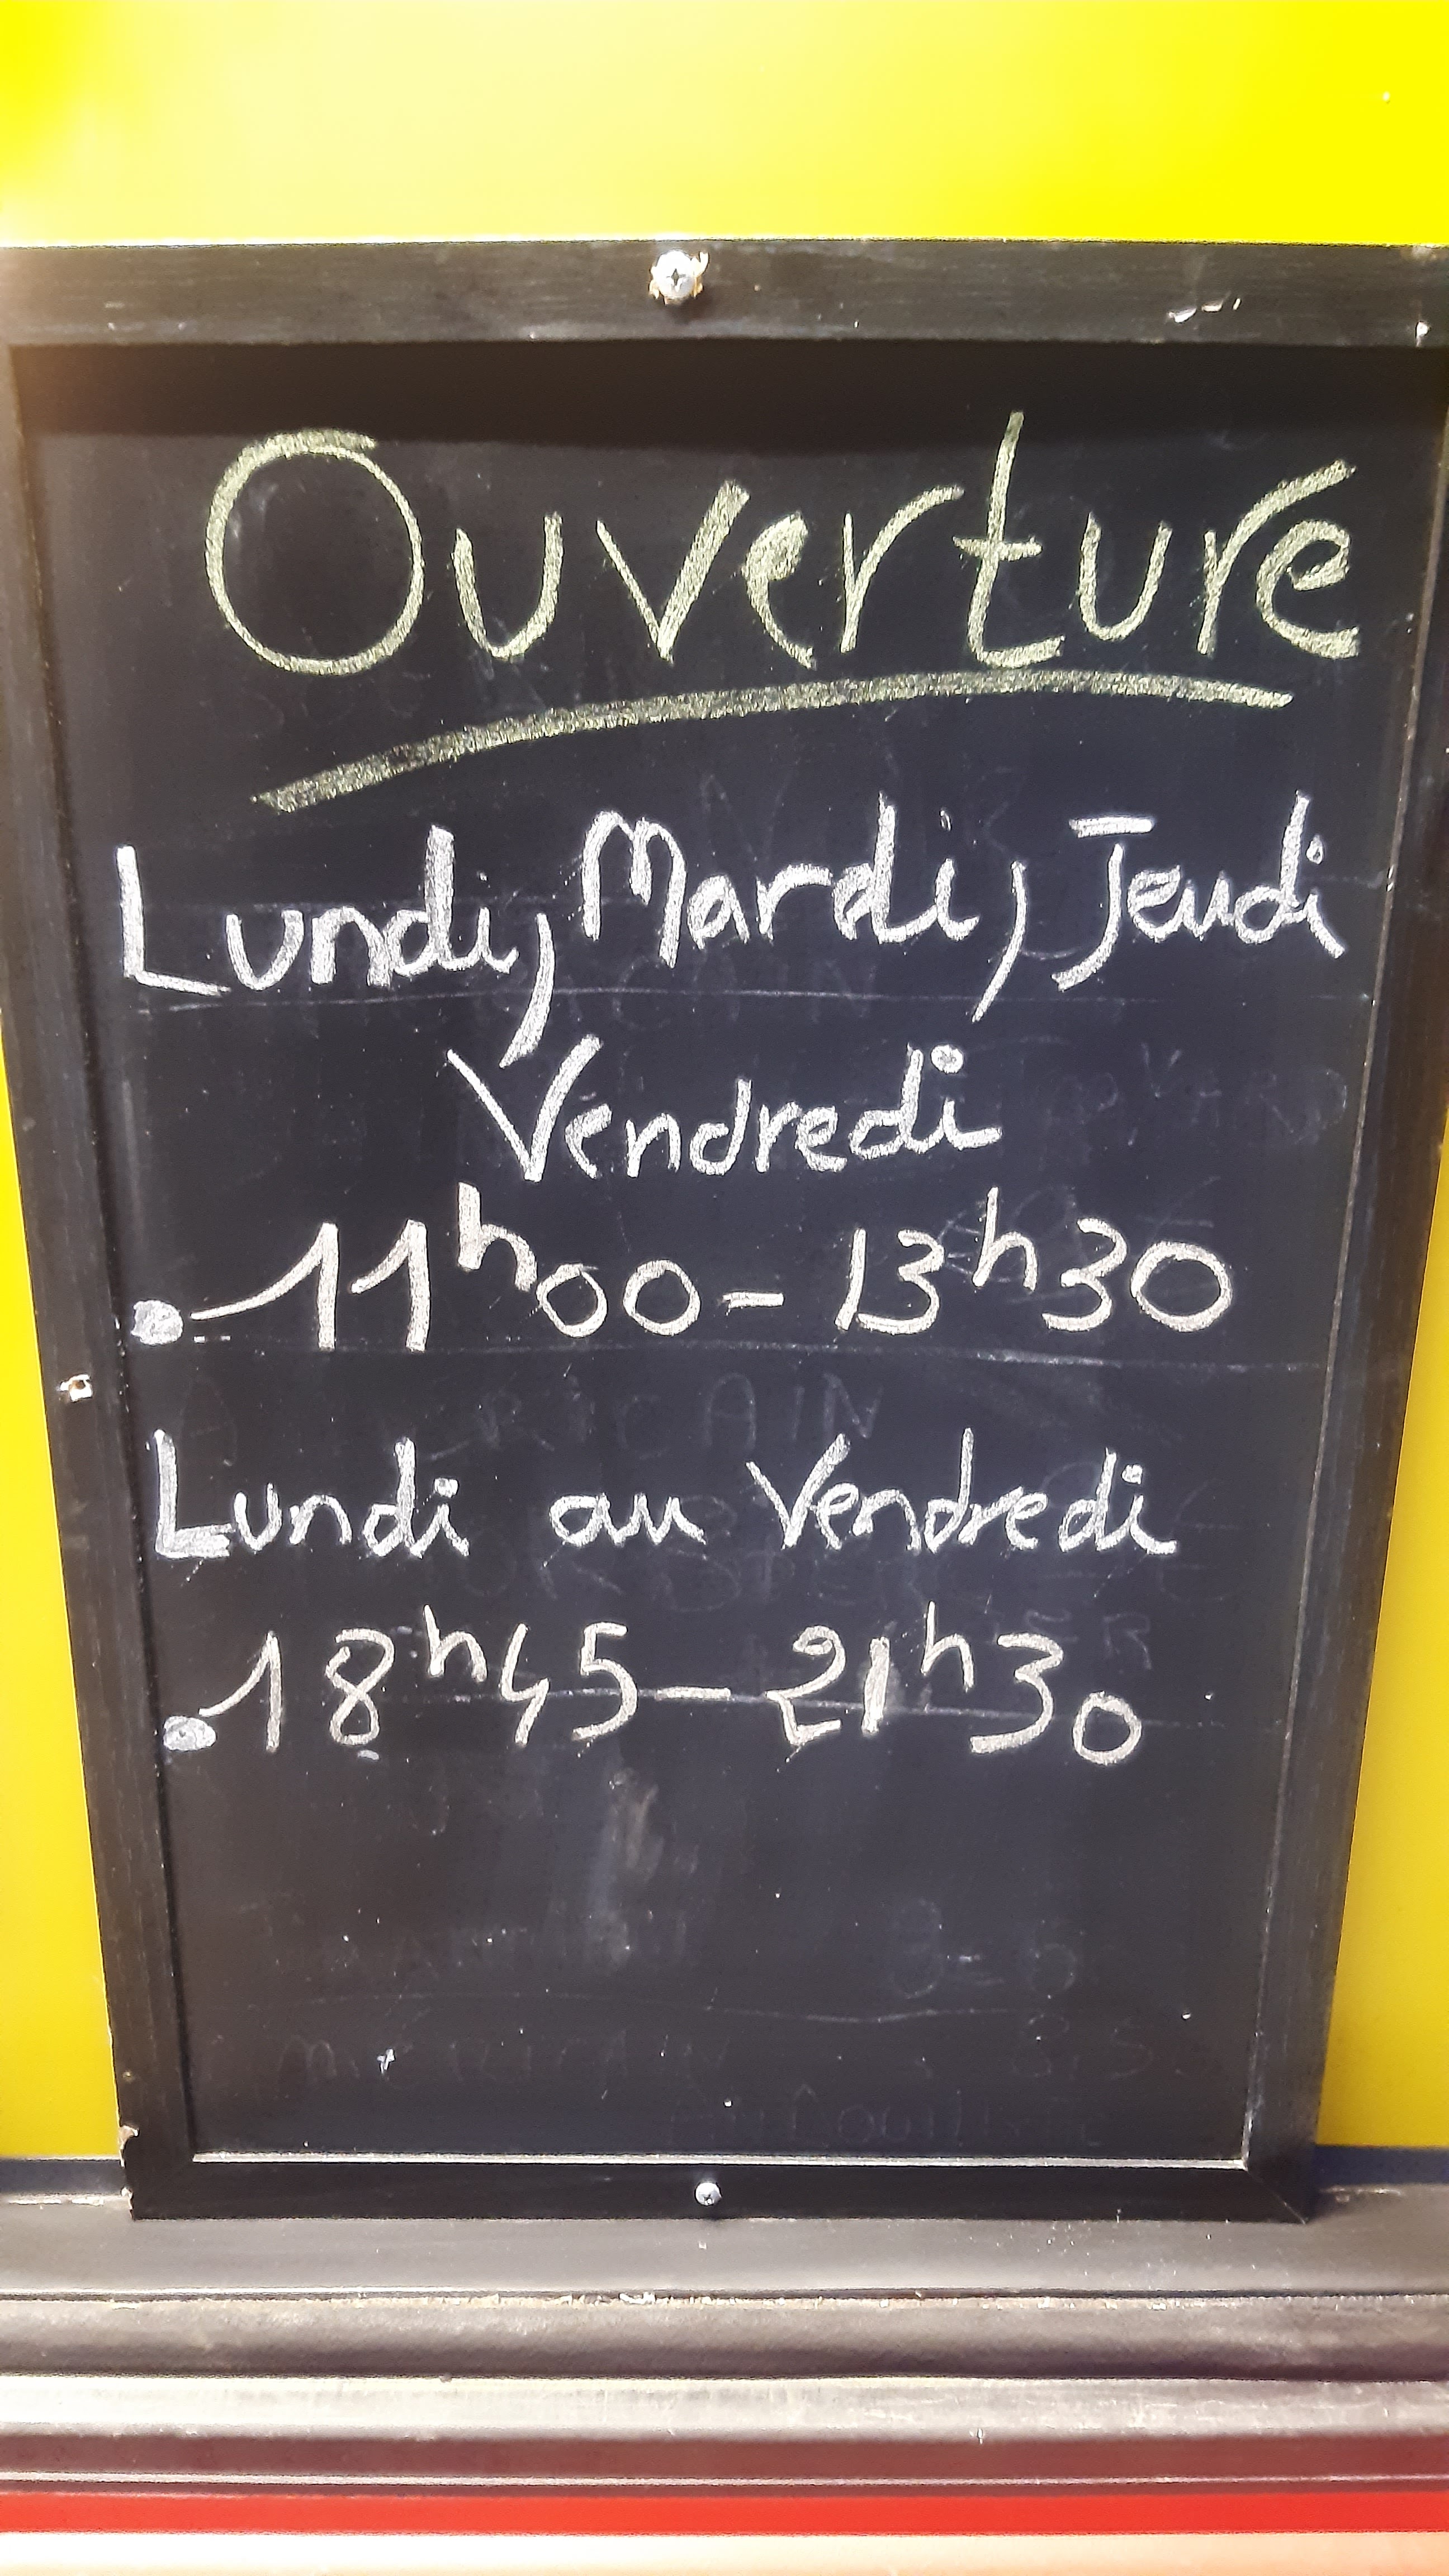 Ouverture
Lundi, Mardi, Jeudi
Vendredi
11h00 - 13h30
Lundi au Vendredi
18h45 - 21h30